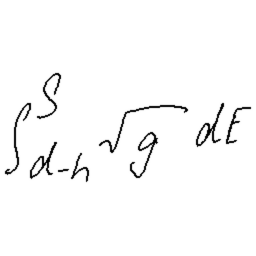 \int_{d-h}^{S} \sqrt{g} dE